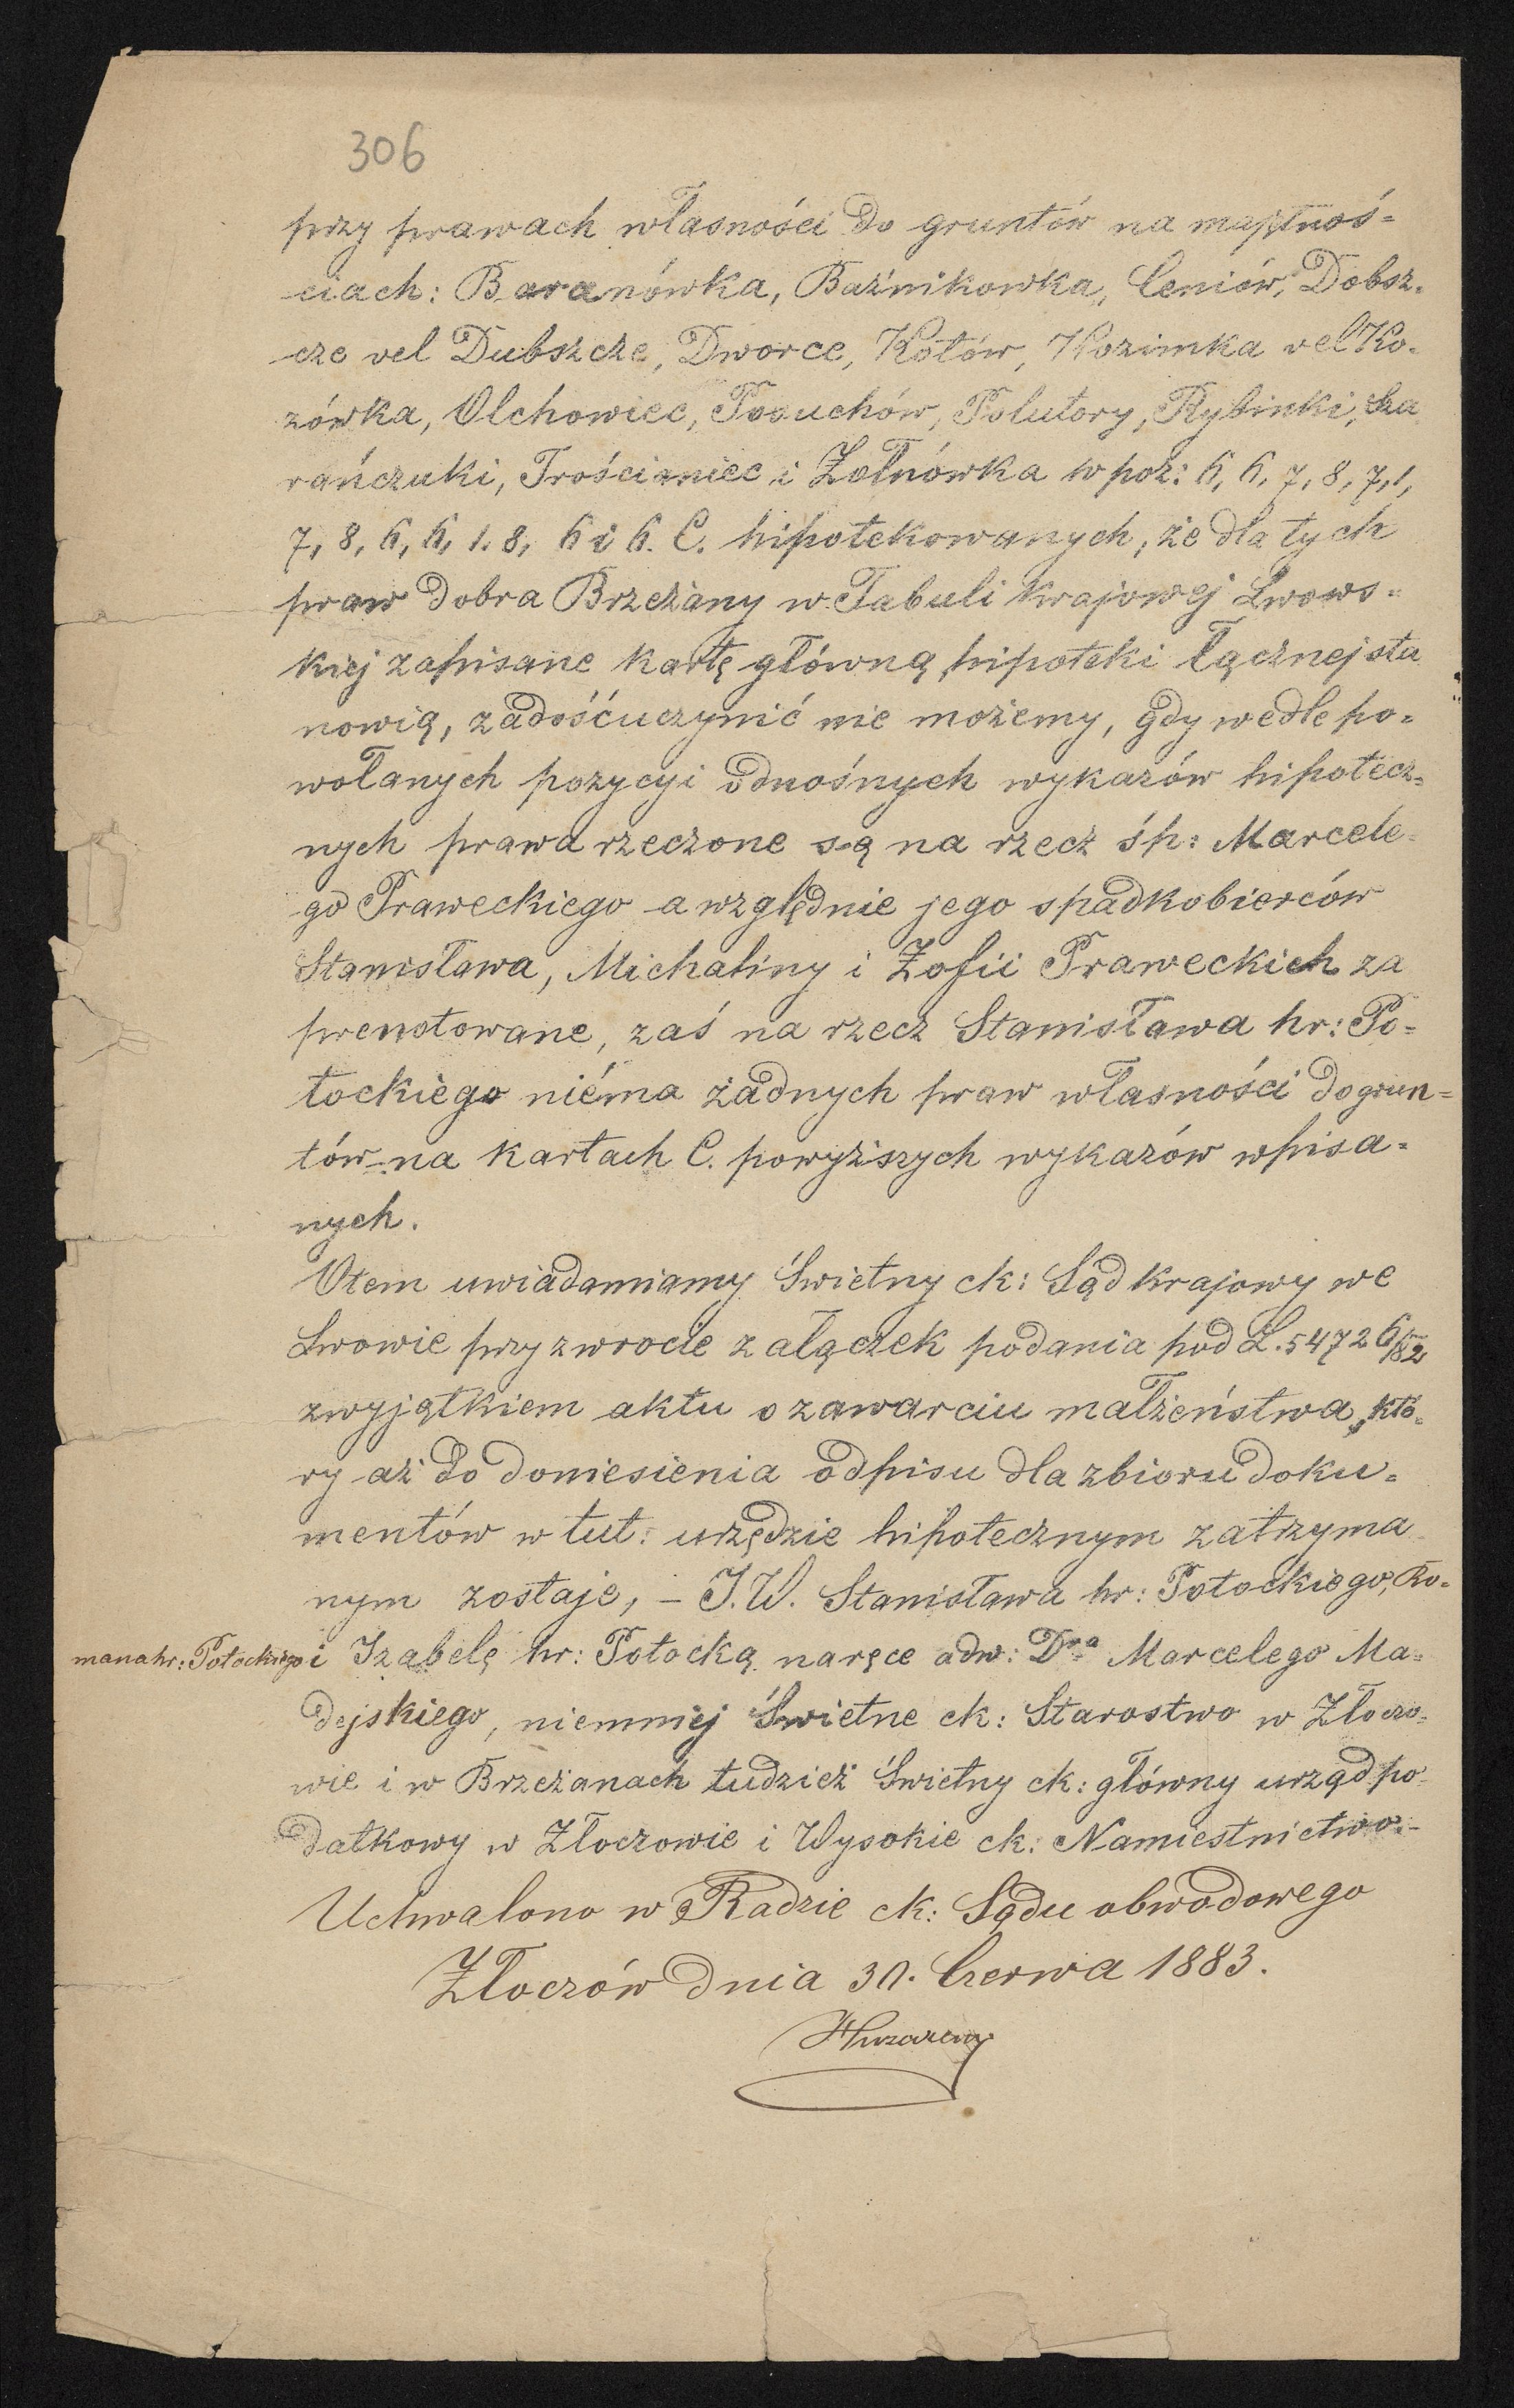 306
przy prawach własności do gruntów na majętnoś=
ciach: Baranówka, Baźnikowka, Ceniów, Dobsz=
cze vel Dubszcze, Dworce, Kotów, Kozimka vel Ko=
zówka, Olchowiec, Posuchów, Polutory, Rybinki, Sza
rańczuki, Trościaniec i Żołnówka w poz: 6, 6, 7, 8, 7, 1,
7, 8, 6, 6, 1. 8, 6 i 6. C. hipotekowanych, że dla tych
praw dobra Brzeżany w Tabuli krajowej Lwows=
kiej zapisane kartę główną hipoteki łącznej sta
nowią, zadośćuczynić nie możemy, gdy wedle po=
wołanych pozycyi odnośnych wykazów hipotecz=
nych prawa rzeczone są na rzecz śp: Marcele=
go Praweckiego a względnie jego spadkobierców
Stanisława, Michaliny i Zofii Praweckich za
prenotowane, zaś na rzecz Stanisława hr: Po=
tockiego niéma żadnych praw własności do grun=
tów na kartach C. powyższych wykazów wpisa=
nych.
O tem uwiadamiamy Świetny ck: Sąd krajowy we
Lwowie przy zwrocie załączek podania pod L. 54726/82
z wyjątkiem aktu o zawarciu małżeństwa, któ=
ry aż do doniesienia odpisu dla zbioru doku=
mentów w tut: urzędzie hipotecznym zatrzyma
nym zostaje, – J. W. Stanisława hr: Potockiego, Ro=
mana hr: Potockiego i Izabelę hr: Potocką na ręce adw: Dra Marcelego Ma=
dejskiego, niemniej Świetne ck: Starostwo w Złoczo=
wie i w Brzeżanach tudzież Świetny ck: główny urząd po
datkowy w Złoczowie i Wysokie ck: Namiestnictwo.–
Uchwalono w Radzie ck: Sądu obwodowego
Złoczów dnia 30. Czerwa 1883.